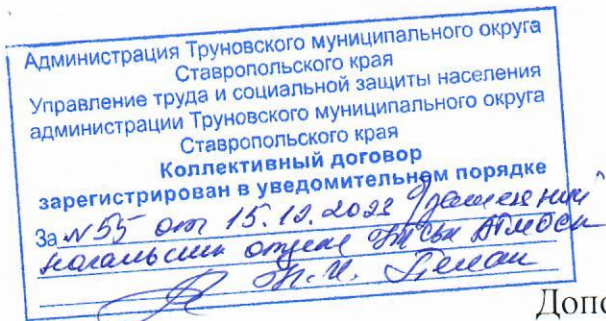 Администрация Труновского муниципального округа
Ставропольского края
Управление труда и социальной защиты населения
администрации Труновского муниципального округа
Ставропольского края
Коллективный договор
зарегистрирован в уведомительном порядке
За №55 от 15.12.2023
отдела
Допо